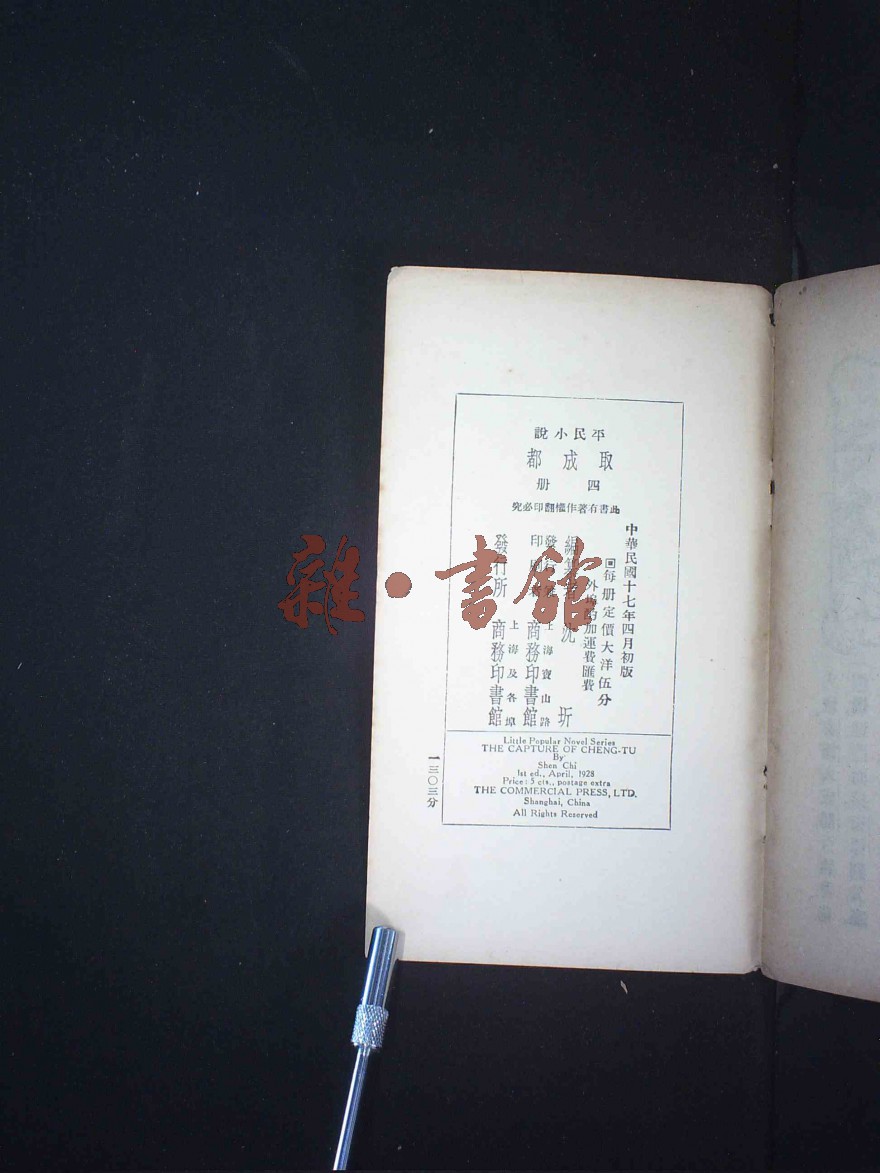 平民小說
取成都
四册
此書有著作權翻印必究
中華民國十七年四月初版
每册定價大洋伍分
外埠酌加運費匯費
編纂者 沈圻
發行者 上海寶山路
印刷者 商務印書館
發行所 上海及各埠
商務印書館
Little Popular Novel Series
THE CAPTURE OF CHENG-TU
By
Shen Chi
1st ed., April, 1928
Price: 5 cts., postage extra
THE COMMERCIAL PRESS, LTD.
Shanghai, China
All Rights Reserved
一三〇三分
雜·書館